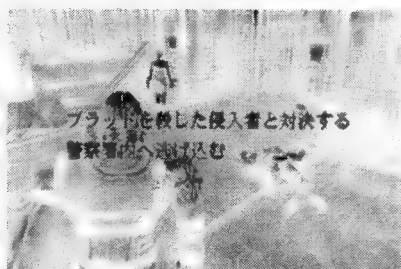 ブラッドを殺した侵入者と対決する
警察署内へ逃げ込む